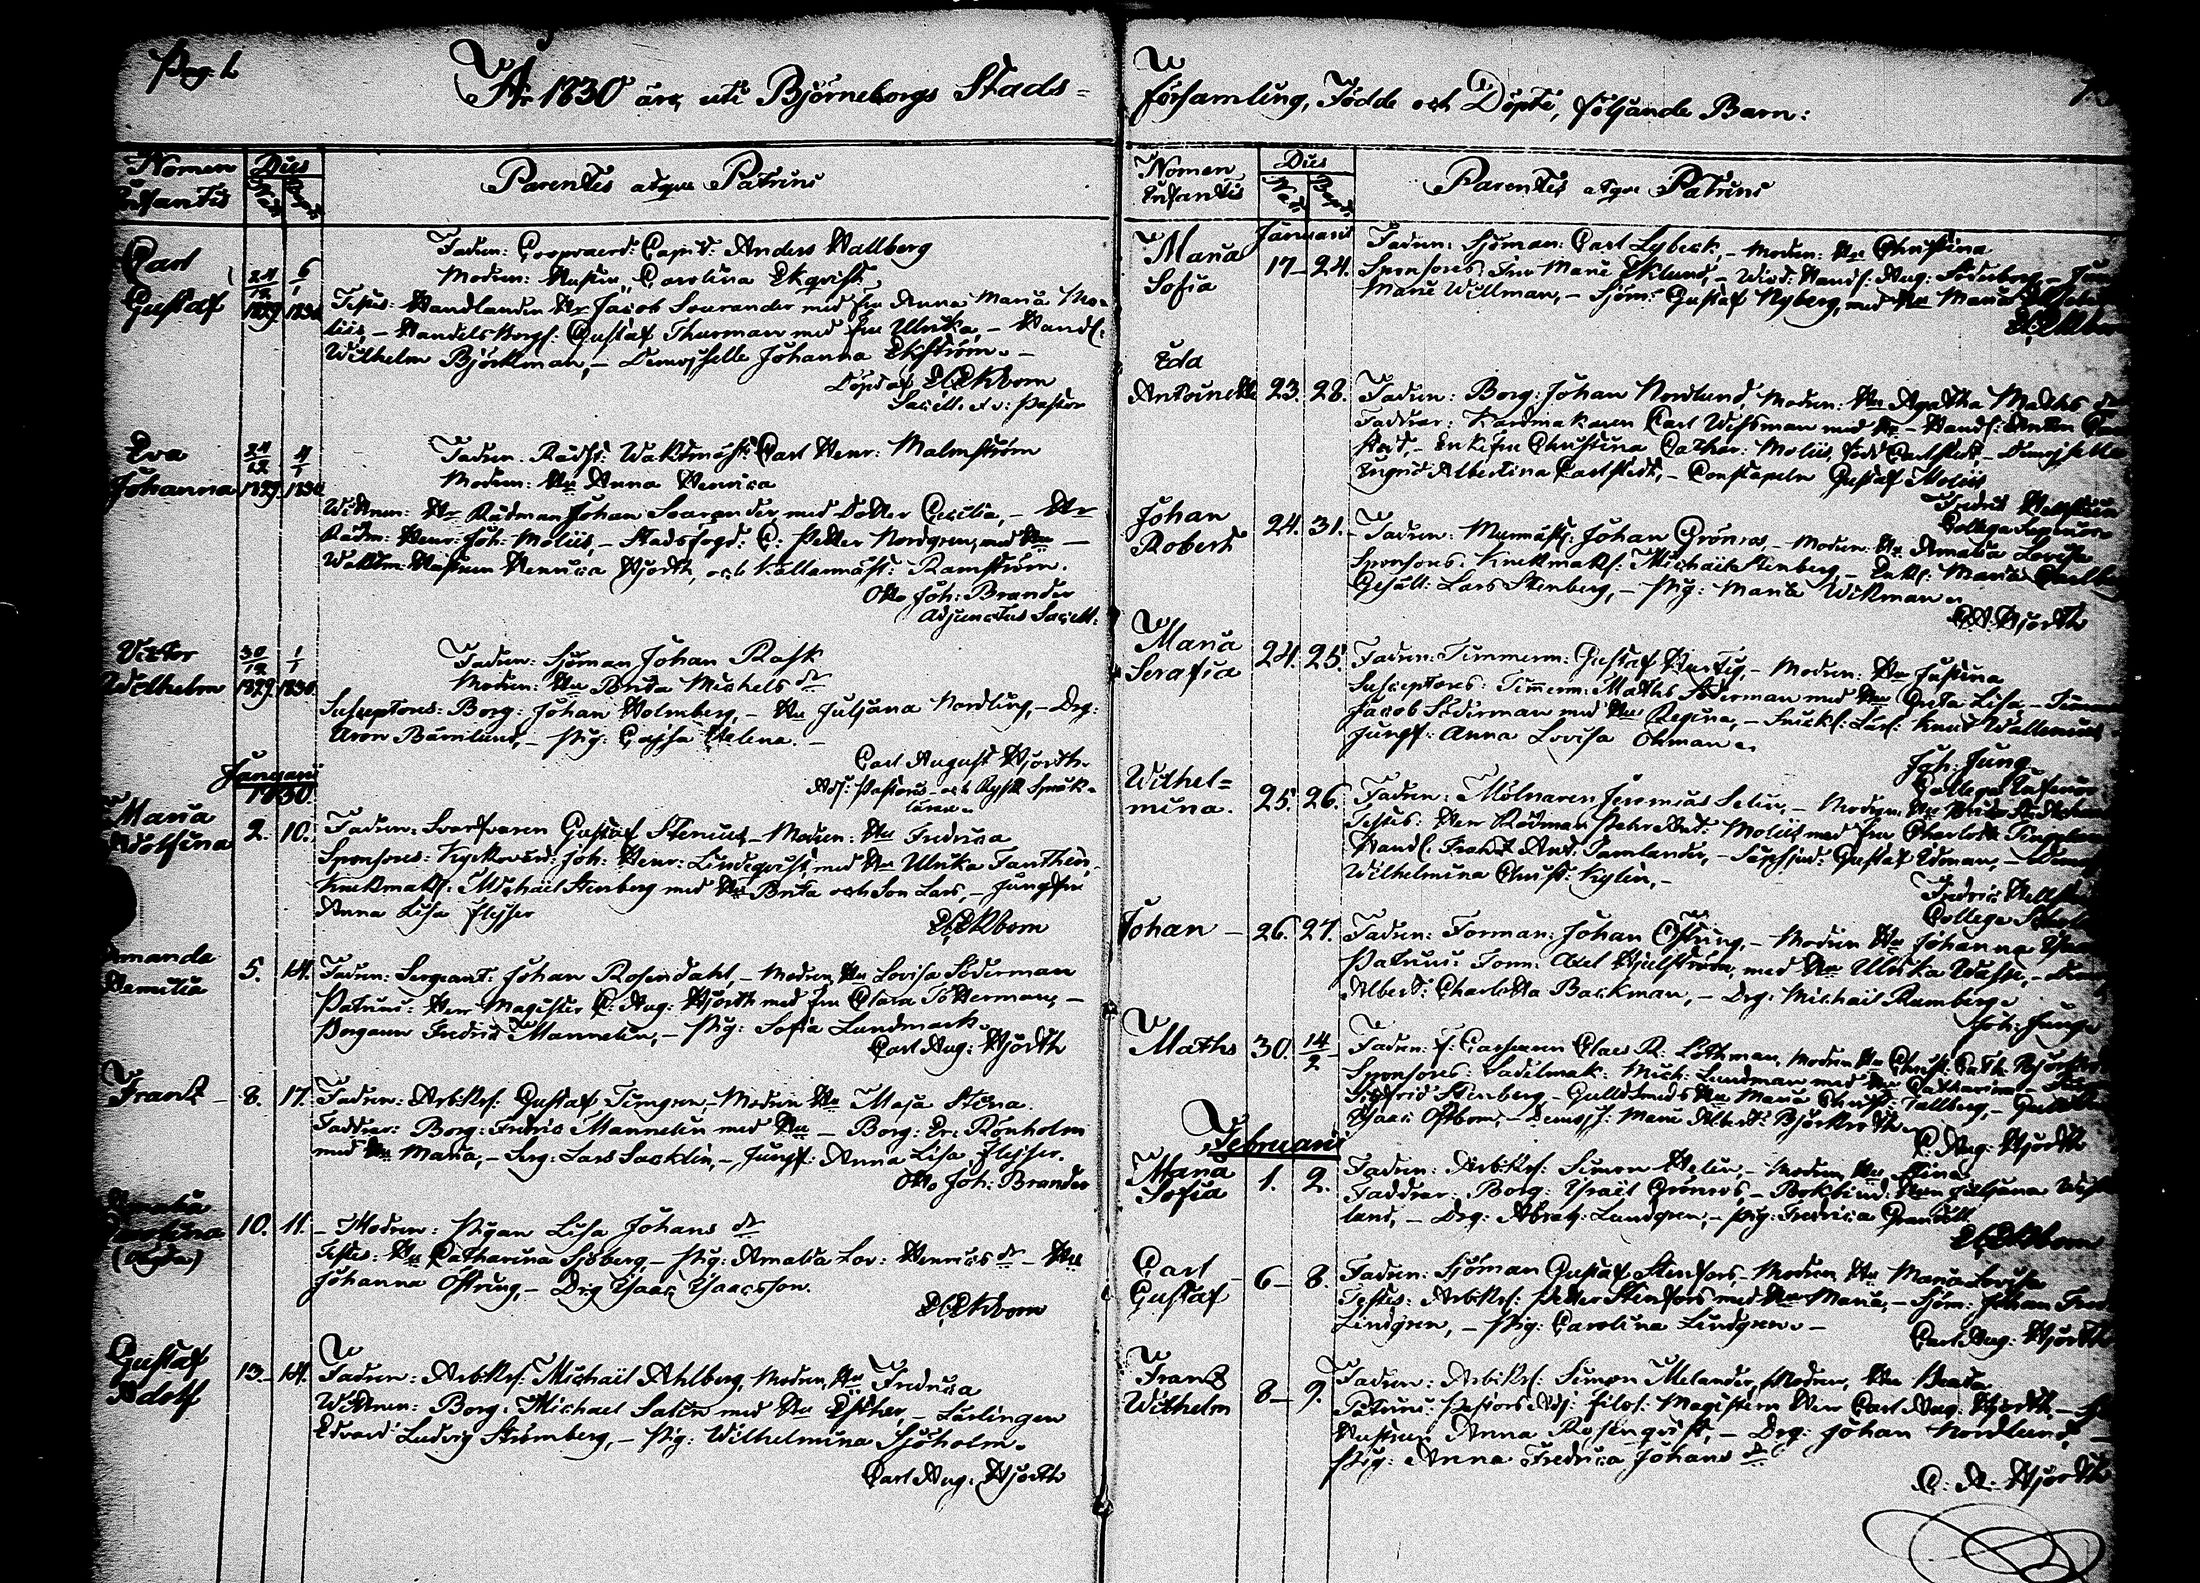 Pag: 1.
År 1830 äro uti Björneborgs Stads=
Nomen Infantis
Dies
Nat:
Parentes atque Patrini
Carl Gustaf
24/12 1829
6/1 1830
Fadren: Coopvaerd: Capit: Anders Wallberg
Modren: Hustru Carolina Ekqvist
Testes: Handlanden Hr Jacob Sourander med fru Anna Maria Mo-
liis, – HandelsBorg: Gustaf Thurman med fru Ulrika, – Handl:
Wilhelm Björkman, – Demojselle Johanna Ekström. –
Döpt af Ekbom
Sacell: et v: Pastor
Eva Johanna
24/12 1829
4/1 1830
Fadren: Rådst: Waktmäst: Carl Henr: Malmström
Modren: Hu Anna Henrica
Wittnen: Hr Rådman Johan Sourander med Dotter Cecilia, – Hr
Rådm: Henr: Joh: Moliis, – Stadsfogd: C: Petter Nordgren, med Hu –
Waktm: Hustrun Henrica Hjorth, och Källarmäst: Ramström.
Otto Joh: Brander
Adjunctus Sacell:
Victor Wilhelm
30/12 1829
1/1 1830
Fadren: Sjöman Johan Rask
Modren: Hu Brita Michels dr
Susceptores: Borg: Johan Holmberg, – Hu Juljana Nordling, – Drg:
Aron Bärnlund, – Pig: Cajsa Helena. –
Carl August Hjorth.
Adj: Pastoris och Rysk Språk-
lärare.
Januarii 1830.
Maria Adolfina
2.
10.
Fadren: Svarfvaren Gustaf Stenius, – Modren: Hu Fredrica
Sponsores: Kyrkovärd: Joh: Henr: Lindeqvist, med Hu Ulrika Fanthén,
Knektmakl: Michaël Stenberg med Hu Brita och Son Lars, – Jungfru
Anna Lisa Flejser
Ekbom
Amanda
5.
14.
Fadren: Sergeant: Johan Rosendahl, – Modren Hu Lovisa Söderman
Patrini: Herr Magister C: Aug: Hjorth med fru Clara Tötterman, –
Borgaren Fredric Mannelin, – Pig: Sofia Lundmark.
Carl Aug: Hjorth
Frans –
8.
17.
Fadren: Arbtkrl: Gustaf Timgren, – Modren Hu Maja Stina.
Faddrar: Borg: Fredric Mannelin med Hu – Borg: Er: Rönholm
med Hu Maria, – Serg: Lars Sacklin, – Jungf: Anna Lisa Flejser.
Otto Joh: Brander
10.
11.
– Modren: Pigan Lisa Johans dr
Testes: Hu Catharina Sjöberg, – Pig: Amalia Lov: Henrics dr – Hu
Johanna Östring, – Drg Isaac Isaacsson.
Ekbom
Gustaf Adolf
13.
14.
Fadren: Arbtkrl: Michaël Ahlberg, Modren, Hu Fredrica
Wittnen: Borg: Michael Salin med Hu Esther, – Lärlingen
Edvard Ludvig Strömberg, – Pig: Wilhelmina Sjöholm.
Carl Aug. Hjorth
församling, Födde och Döpte, följande Barn:
Nomen Infantis
Dies
Nat:
Parentes atque Patrini
Januarii
Maria Sofia
17 –
24.
Fadren: Sjöman: Carl Lybeck, – Modren: Hu Christina
Sponsores: Fru Marie Eklund, – Wict: Handl: Aug: Söderberg –
Marie Willman, – Sjöm: Gustaf Nyberg, med Hu Maria
Ekbom
Eda Antoinette
23.
28.
Fadren: Borg: Johan Nordlund, Modren: Hu Agatha Matths dr
Faddrar: Kardmakaren Carl Wissman med Hu – Handl: Anton
stedt, – Enkefru Christina Cathar: Moliis, född Carlstedt, – Demojselle
Ingrid Albertina Carlstedt, – Constapeln Gustaf Moliis
Fredric
Johan Robert
24.
31.
Fadren: Murmäst: Johan Grönroos – Modren: Hu Amalia Lovisa
Sponsores: Knektmakl: Michaël Stenberg, – Enkl: Maria
Gesäll: Lars Stenberg, – Pig: Maria Wikman.
C.A. Hjorth
Maria Serafia
24.
25.
Fadren: Timmerm: Gustaf Hertig, – Modren: Hu Justina
Susceptores: Timmerm: Maths Söderman med Hu Greta Lisa,
Jacob Söderman med Hu Regina, – Snick: Lär: Knut Wallenius
Jungf: Anna Lovisa Öhman.
Joh: Jung
Wilhel=
mina.
25.
26.
Fadren: Mölnaren Jeremias Selin, –
Testes: Herr Rådman Pehr Ant: Moliis med fru Charlotta
Handl: Frans Ant: Tamlander, – Gustaf Edman,
Wilhelmina Christ: Kylin, –
Fredric
Johan –
26.
27.
Fadren: Forman: Johan Östring, – Modren Hu Johanna
Patrini: Form: Axel Hjelström, med Hu Ulrika
Albert: Charlotta Backman, – Drg: Michaël Rumberg.
Joh: Jung
Maths
30.
14/2
Fadren: f: Claes R: Lothman, Modren Hu Christ: Cath:
Sponsores: Sadelmak: Mich: Lundman med Hu Catharina –
Sigfrid Stenberg – Gulldsmeds Hu Maria Christ: Vallberg, –
Isaac Östbom, – Demojs: Maria Albert: Björkroth
C: Aug: Hjorth
Februarii
Maria Sofia
1.
2.
Fadren: Arbtkrl: Simon Helin – Modren, Hu Stina
Faddrar: Borg: Israël Grönroos, – Bokbind: Hu Juljana
land, – Drg: Abrah: Lundgren, – Pig: Fredrica Granvall
Ekbom
Carl Gustaf
6 –
8.
Fadren: Sjöman Gustaf Stenfors – Modren Hu Maria Lovisa
Testes: Arbtkrl: Petter Stenfors med Hu Maria, – Sjöm: Johan
Lindgren, – Pig: Carolina Lindgren. –
Carl Aug: Hjorth
Frans Wilhelm
8 –
9.
Fadren: Arbtkrl: Simon Melander, Modren, Hu Beata
Patrini: Pastors Adj: filos: Magistern Herr Carl Aug: Hjorth, –
Hustrun Anna Rosenqvist, – Drg: Johan Nordlund, –
Pig: Anna Fredrica Johans dr
C: A: Hjorth